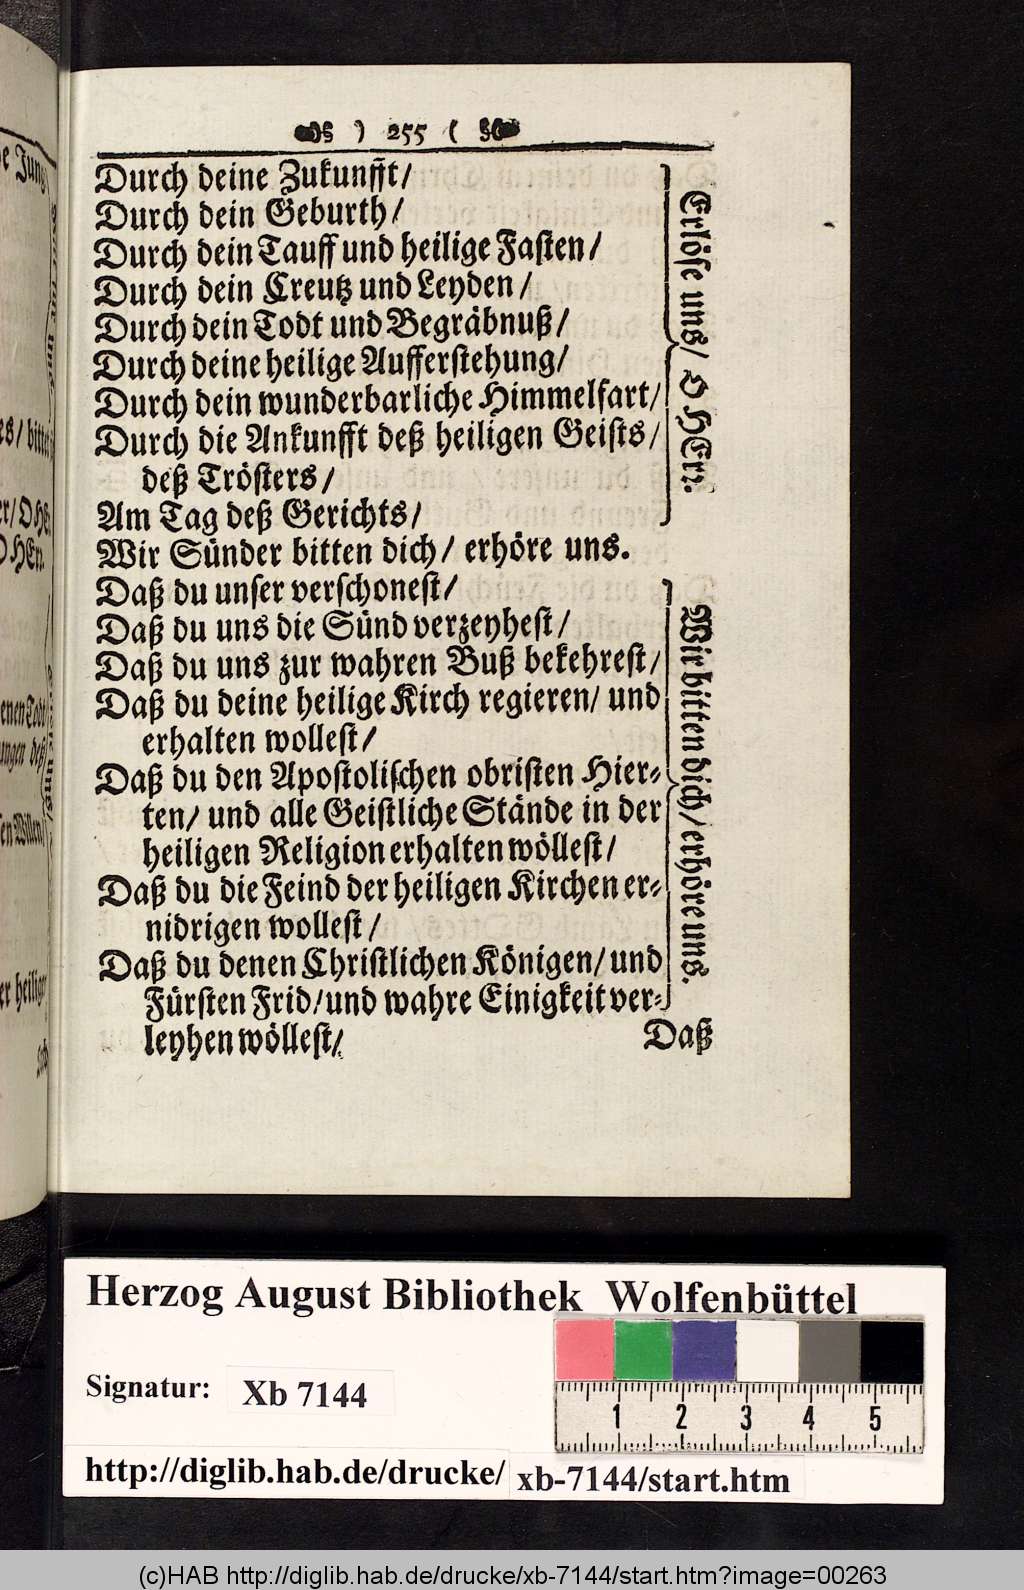 ) 255 (
Durch deine Zukunfft/
Durch dein Geburth/
Durch dein Tauff und heilige Fasten/
Durch dein Creutz und Leyden/
Durch dein Todt und Begräbnuß/
Durch deine heilige Aufferstehung/
Durch dein wunderbarliche Himmelfart/
Durch die Ankunfft deß heiligen Geists/
deß Trösters/
Am Tag deß Gerichts/
Erlöse uns/ O HErr.
Wir Sünder bitten dich/ erhöre uns.
Daß du unser verschonest/
Daß du uns die Sünd verzeyhest/
Daß du uns zur wahren Buß bekehrest/
Daß du deine heilige Kirch regieren/ und
erhalten wollest/
Daß du den Apostolischen obristen Hier-
ten/ und alle Geistliche Stände in der
heiligen Religion erhalten wöllest/
Daß du die Feind der heiligen Kirchen er-
nidrigen wollest/
Daß du denen Christlichen Königen/ und
Fürsten Frid/ und wahre Einigkeit ver-
leyhen wöllest/
Wir bitten dich/ erhöre uns.
Daß
Herzog August Bibliothek Wolfenbüttel
Signatur: Xb 7144
http://diglib.hab.de/drucke/ xb-7144/start.htm
1 2 3 4 5
(c)HAB http://diglib.hab.de/drucke/xb-7144/start.htm?image=00263